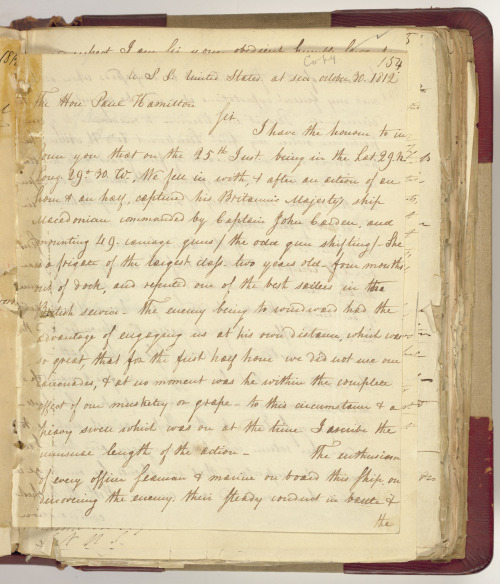 Co 84
154
U. S. S. United States. at sea october 30. 1812
The Hon. Paul Hamilton
Sir
I have the honour to in
form you that on the 25th Inst. being in the Lat. 29. N.
Long. 29° 30. W. We fell in with, & after an action of an
hour & an half, captured his Britannic Majestys ship
Macedonian commanded by Captain John Carden, and
mounting 49. carriage guns / the odd gun shifting / She
is a frigate of the largest class. two years old - four months
out of dock, and reputed one of the best sailers in the
British service - The enemy being to windward had the
advantage of engaging us at his own distance, which was
so great that for the first half hour we did not use our
carronades, & at no moment was he within the complete
effect of our musketry or grape - to this circumstance & a
heavy swell which was on at the time I ascribe the
unusual length of the action - The enthusiasm
of every officer seaman & marine on board this ship on
discovering the enemy. their steady conduct in battle &
the